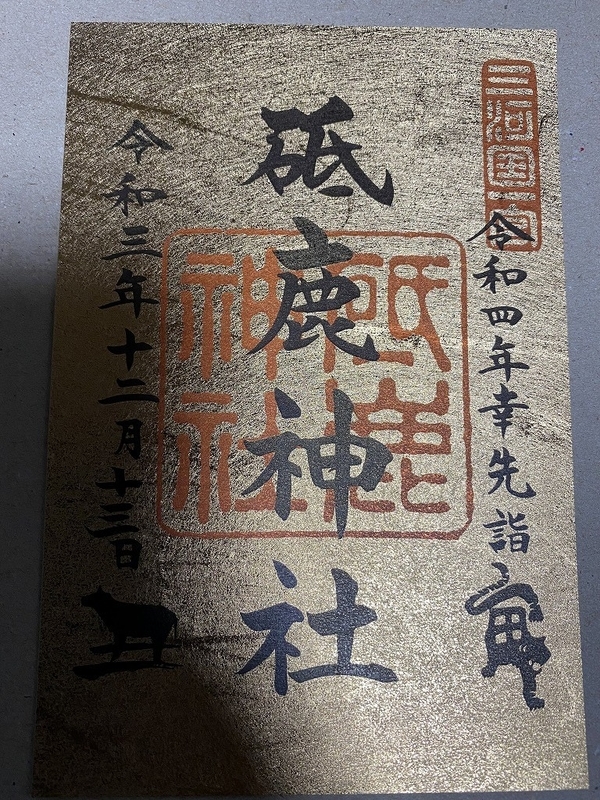 三河国一宮
令和四年幸先詣 寅
砥鹿神社
砥鹿
神社
令和三年十二月十三日 丑